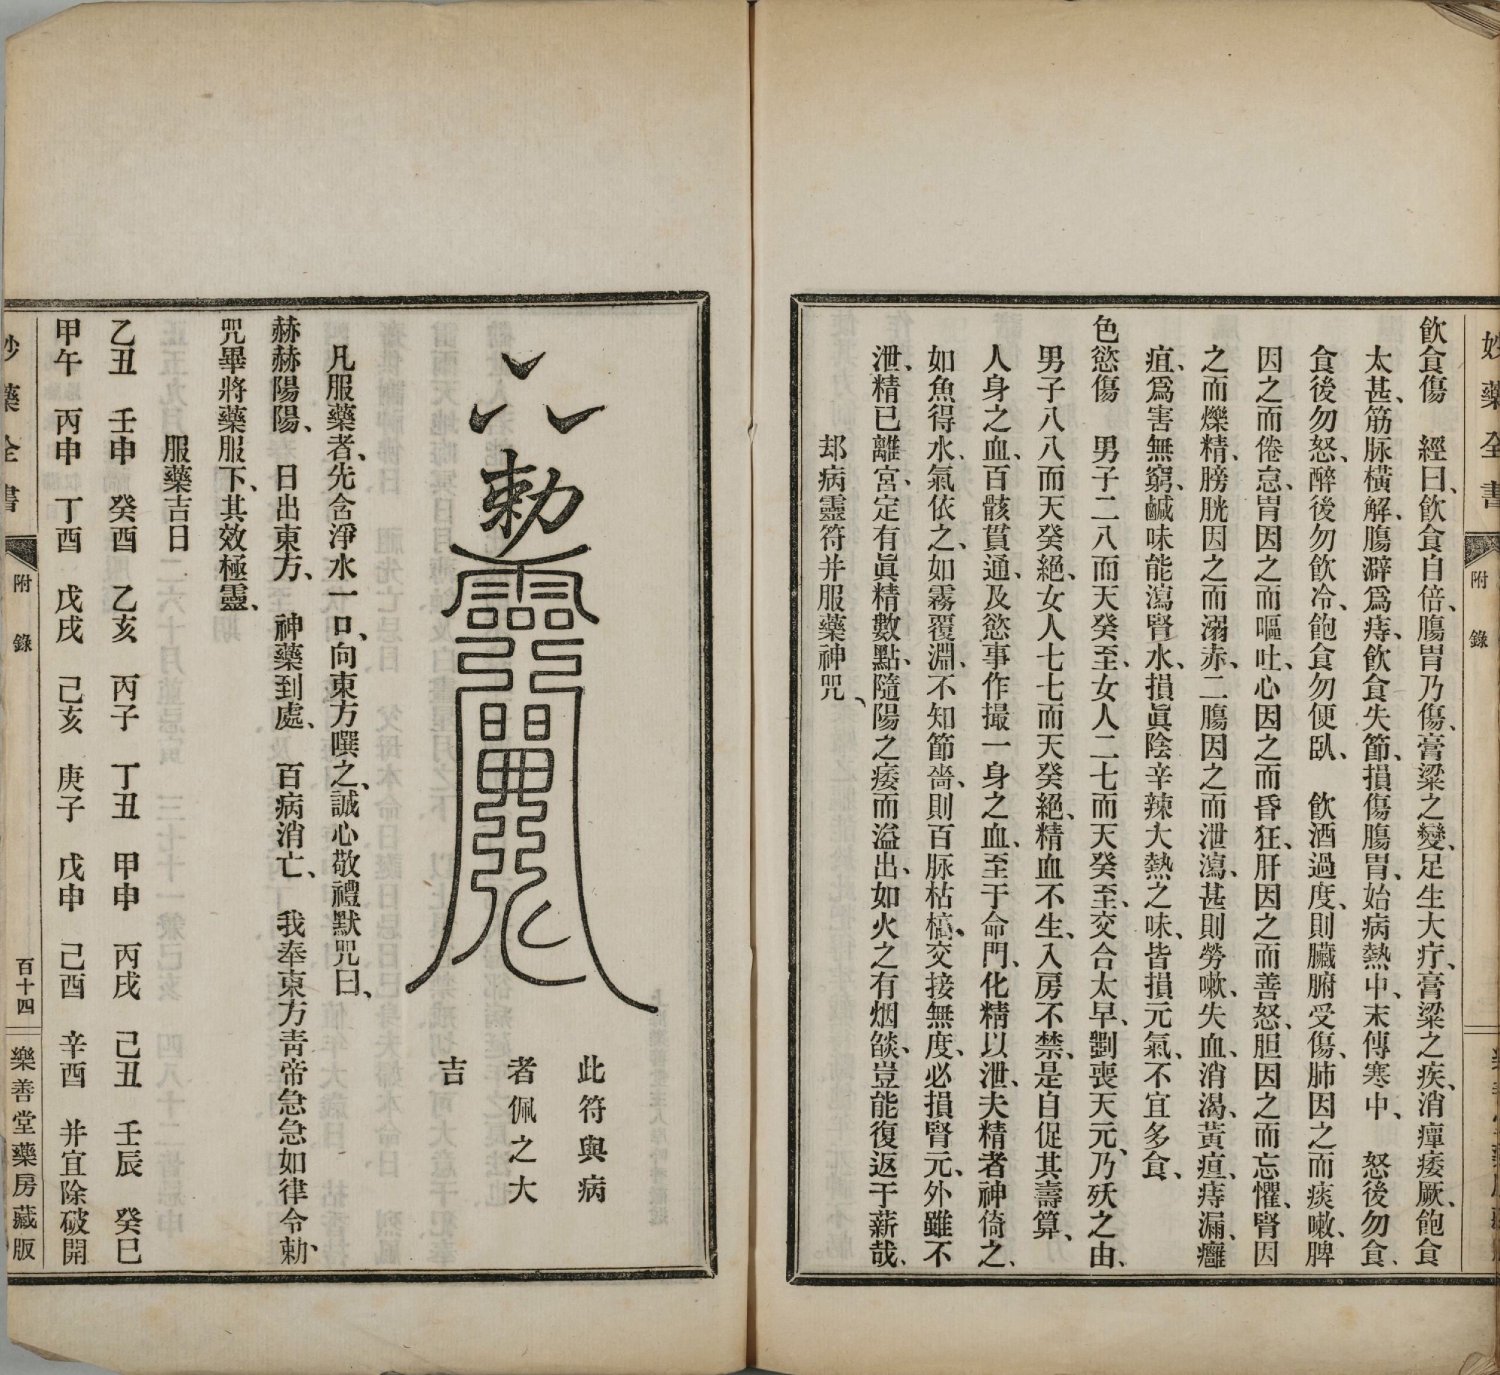 妙藥全書
附錄
飲食傷　經曰、飲食自倍、腸胃乃傷、膏粱之變、足生大疔、膏粱之疾、消癉痿厥、飽食
太甚、筋脉橫解、腸澼爲痔、飲食失節、損傷腸胃、始病熱中、末傳寒中、　怒後勿食、
食後勿怒、醉後勿飲冷、飽食勿便臥、　飲酒過度、則臟腑受傷、肺因之而痰嗽、脾
因之而倦怠、胃因之而嘔吐、心因之而昏狂、肝因之而善怒、胆因之而忘懼、腎因
之而爍精、膀胱因之而溺赤、二腸因之而泄瀉、甚則勞嗽、失血、消渴、黃疸、痔漏、癰
疽、爲害無窮、鹹味能瀉腎水、損眞陰、辛辣大熱之味、皆損元氣、不宜多食、
色慾傷　男子二八而天癸至、女人二七而天癸至、交合太早、劉喪天元、乃殀之由、
男子八八而天癸絕、女人七七而天癸絕、精血不生、入房不禁、是自促其壽算、
人身之血、百骸貫通、及慾事作撮一身之血、至于命門、化精以泄、夫精者神倚之、
如魚得水、氣依之、如霧覆淵、不知節嗇、則百脉枯槁、交接無度、必損腎元、外雖不
泄、精已離宮、定有眞精數點、隨陽之痿而溢出、如火之有烟燄、豈能復返于薪哉、
却病靈符幷服藥神咒、
勅靈
此符與病
者佩之大
吉
凡服藥者、先含淨水一口、向東方噀之、誠心敬禮默咒曰、
赫赫陽陽、　日出東方、　神藥到處、　百病消亡、　我奉東方靑帝急急如律令勅、
咒畢將藥服下、其效極靈、
服藥吉日
乙丑　壬申　癸酉　乙亥　丙子　丁丑　甲申　丙戌　己丑　壬辰　癸巳
甲午　丙申　丁酉　戊戌　己亥　庚子　戊申　己酉　辛酉　幷宜除破開
妙藥全書
附錄
百十四
樂善堂藥房藏版